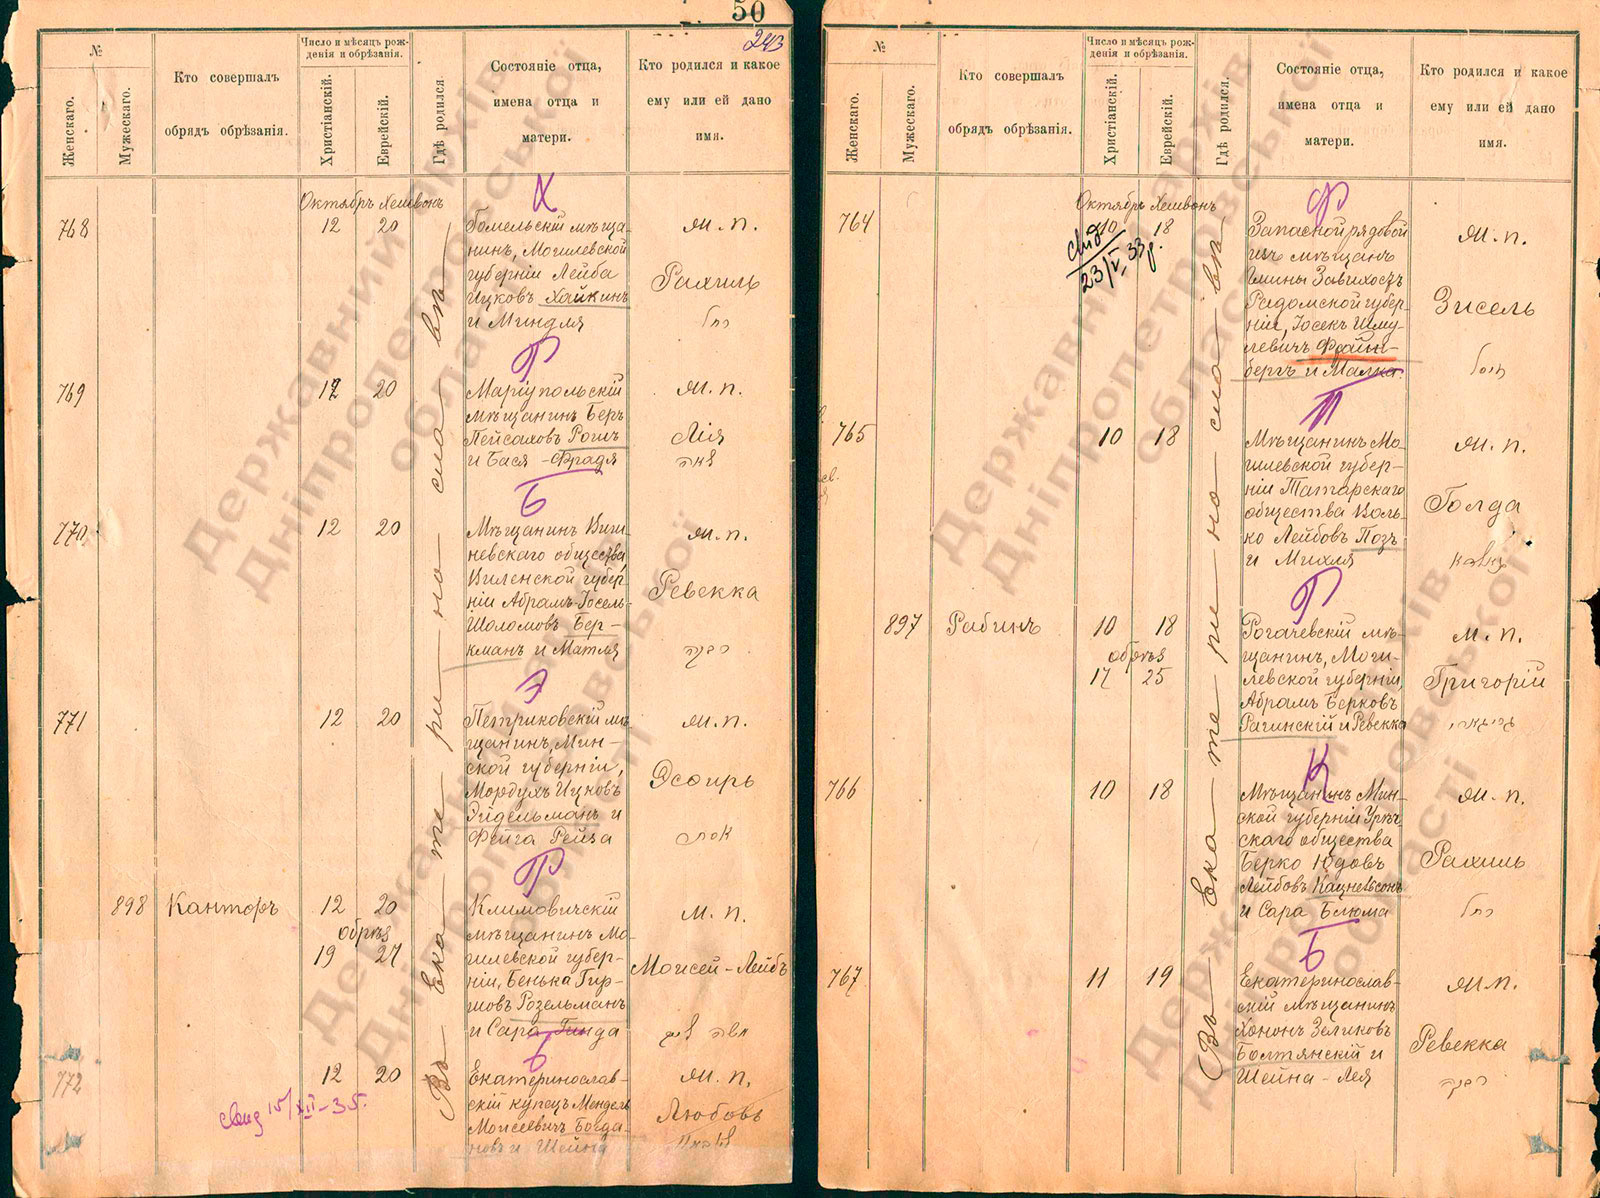 50
243
№
Женскаго.
Мужескаго.
Кто совершалъ
обрядъ обрѣзанія.
Число и мѣсяцъ рож-
денія и обрѣзанія.
Христіанскій.
Еврейскій.
Гдѣ родился
Состояніе отца,
имена отца и
матери.
Кто родился и какое
ему или ей дано
имя.
Октябрь Хешвонъ
Въ Ека-те-ри-но-сла-вѣ
Х
768
12
20
Гомельскій мѣща-
нинъ, Могилевской
губерніи Лейба
Ицковъ Хайкинъ
и Миндля
Ж. п.
Рахиль
רחל
Р
769
12
20
Маріупольскій
мѣщанинъ Беръ
Пейсаховъ Рошъ
и Бася-Фрадя
Ж. п.
Лія
לאה
Б
770
12
20
Мѣщанинъ Виш-
невскаго общества,
Виленской губер-
ніи Абрамъ-Іосель-
Шоломовъ Бер-
кманъ и Матля
Ж. п.
Ревекка
רבקה
Э
771
12
20
Петриковскій мѣ-
щанинъ, Мин-
ской губерніи,
Мордухъ Ицковъ
Эйдельманъ и
Фейга Рейза
Ж. п.
Эсѳирь
אסתר
Р
898
Канторъ
12
20
обрѣз
19
27
Климовичскій
мѣщанинъ Мо-
гилевской губер-
ніи, Бенька Гир-
шовъ Розельманъ
и Сара Гинда
М. п.
Моисей-Лейбъ
משה ליב
Б
772
12
20
свид 15/XII-35.
Екатеринослав-
скій купецъ Мендель
Моисеевичъ Богда-
новъ и Шейна
Ж. п.
Любовь
№
Женскаго.
Мужескаго.
Кто совершалъ
обрядъ обрѣзанія.
Число и мѣсяцъ рож-
денія и обрѣзанія.
Христіанскій.
Еврейскій.
Гдѣ родился.
Состояніе отца,
имена отца и
матери.
Кто родился и какое
ему или ей дано
имя.
Октябрь Хешвонъ
Въ Ека-те-ри-но-сла-вѣ
Ф
764
10
18
свид
23/V, 33 р.
Запасной рядовой
изъ мѣщанъ
Гмины Завихостъ
Радомской губер-
ніи, Іосекъ Шму-
левичъ Файн-
бергъ и Малка.
Ж. п.
Зисель
זיסל
П
765
10
18
Мѣщанинъ Мо-
гилевской губер-
ніи Татарскаго
общества Воль-
ко Лейбовъ Позъ
и Михля
Ж. п.
Голда
Р
897
Рабинъ
10
18
обрѣз
17
25
Рогачевскій мѣ-
щанинъ, Моги-
левской губерніи,
Абрамъ Берковъ
Рагинскій и Ревекка
М. п.
Григорій
К
766
10
18
Мѣщанинъ Мин-
ской губерніи Урѣч-
скаго общества
Берко Юдовъ
Лейбовъ Кацнельсонъ
и Сара Блюма
Ж. п.
Рахиль
רחל
Б
767
11
19
Екатеринослав-
скій мѣщанинъ
Хононъ Зеликовъ
Болтянскій и
Шейна-Лея
Ж. п.
Ревекка
רבקה
Державний архів
Дніпропетровської
області